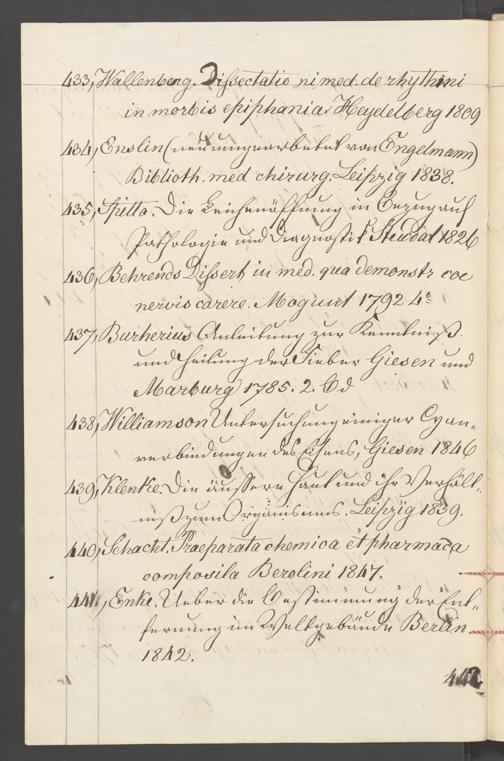 433, Wallenberg. Dissectatio ni med. de rhythmi
in morbis epiphania. Heydelberg 1809
434, Enslin (neu umgearbeitet von Engelmann)
Biblioth. med chirurg. Leipzig 1838.
435, Spitta. Die Leichenöffnung in Bezug auf
Pathologie und Diagnostik Stendal 1826
436, Behrends Dissert in med. qua demonstr coe
nervis carere. Mogunt 1792 4º
437, Burherius Anleitung zur Kenntniß
und Heilung der Fieber Giesen und
Marburg 1785. 2. Bd
438, Williamson Untersuchung einiger Cyan-
verbindungen des Eisens, Giesen 1846
439, Klenke. Die äussere Haut und ihr Verhält-
niß zum Organismus. Leipzig 1839.
440, Schacht. Praeparata chemica et pharmaca
composita Berolini 1847.
441, Enke. Ueber die Bestimmung der Ent-
fernung im Weltgebäude Berlin
1842.
442